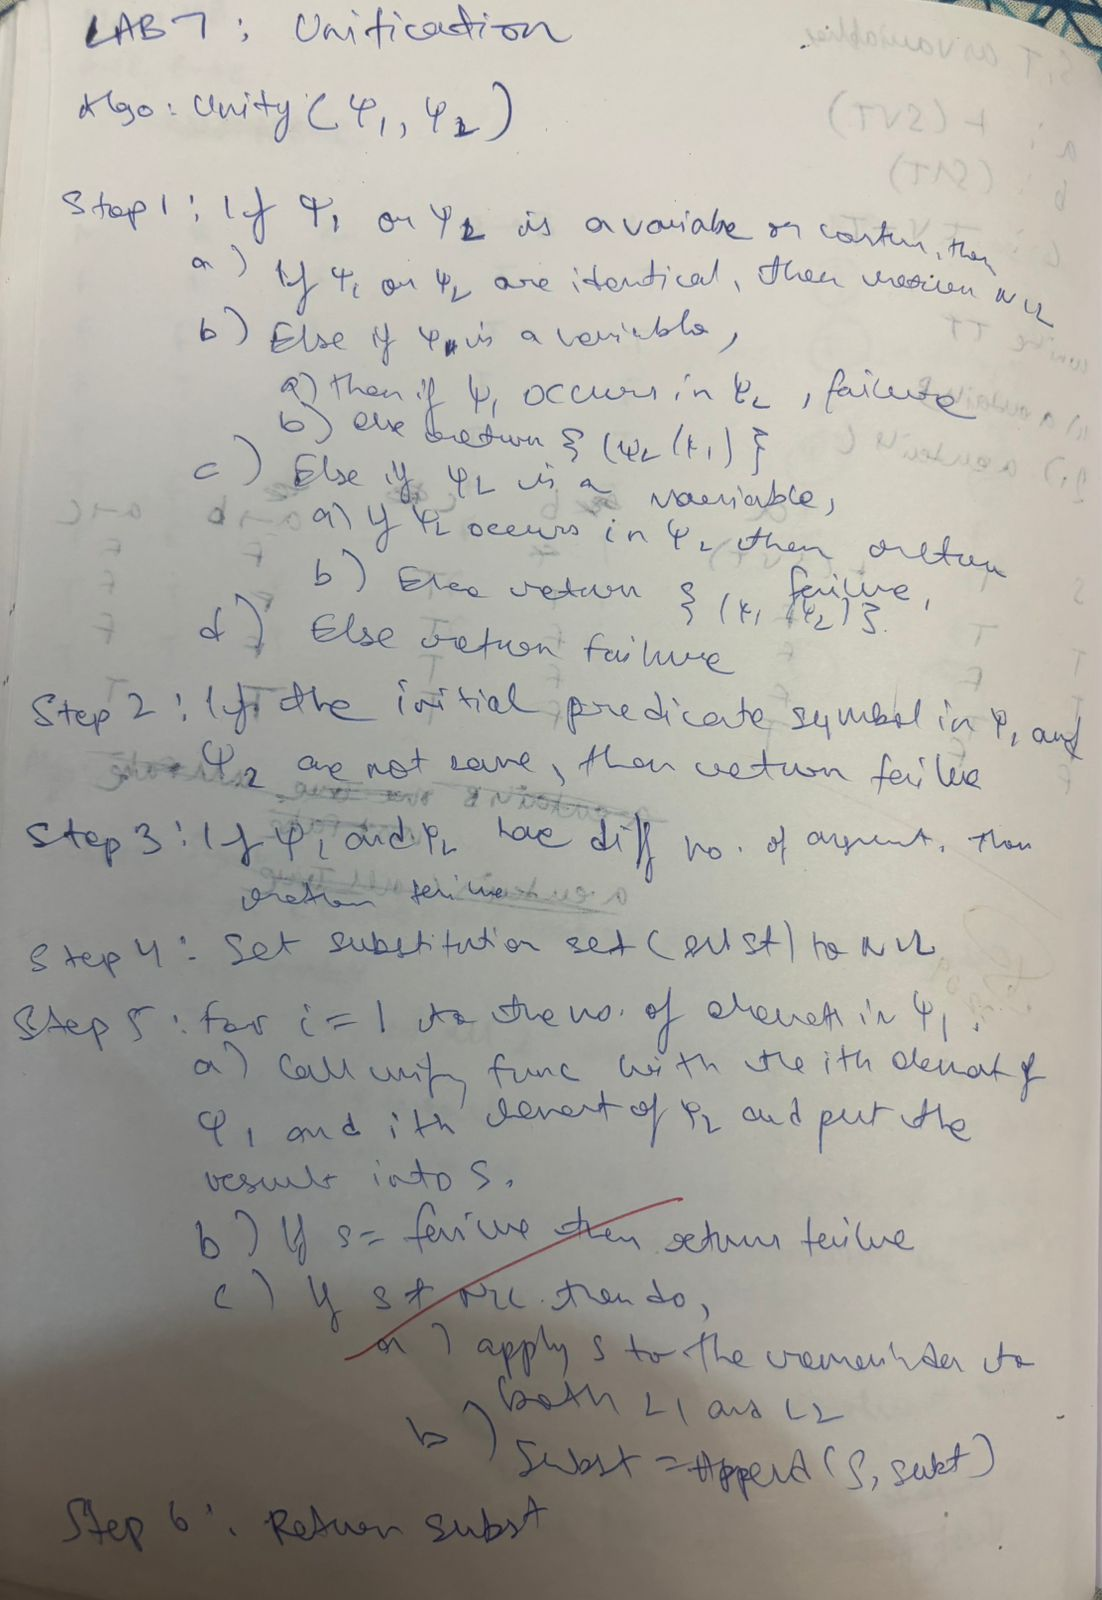 LAB 7: Unification
Algo: Unity (Ψ₁, Ψ₂)
Step 1: If Ψ₁ or Ψ₂ is a variable or constan, then
a) If Ψ₁ or Ψ₂ are identical, then return NIL
b) Else if Ψ₁ is a variable,
a) then if Ψ₁ occurs in Ψ₂, failure
b) else return { (Ψ₂ / Ψ₁) }
c) Else if Ψ₂ is a variable,
a) If Ψ₂ occurs in Ψ₂ then return
failure,
b) Else return { (Ψ₁ / Ψ₂) }.
d) Else return failure
Step 2: If the initial predicate symbol in Ψ₁ and
Ψ₂ are not same, then return failure
Step 3: If Ψ₁ and Ψ₂ have diff no. of argument, then
return failure
Step 4: Set substitution set (subst) to NIL
Step 5: for i = 1 to the no. of element in Ψ₁.
a) Call unify func with the ith element of
Ψ₁ and ith element of Ψ₂ and put the
result into S.
b) If S = failure then return failure
c) If S ≠ NIL then do,
a) apply S to the remainder to
both L1 and L2
b) Subst = Append (S, subst)
Step 6: Return subst